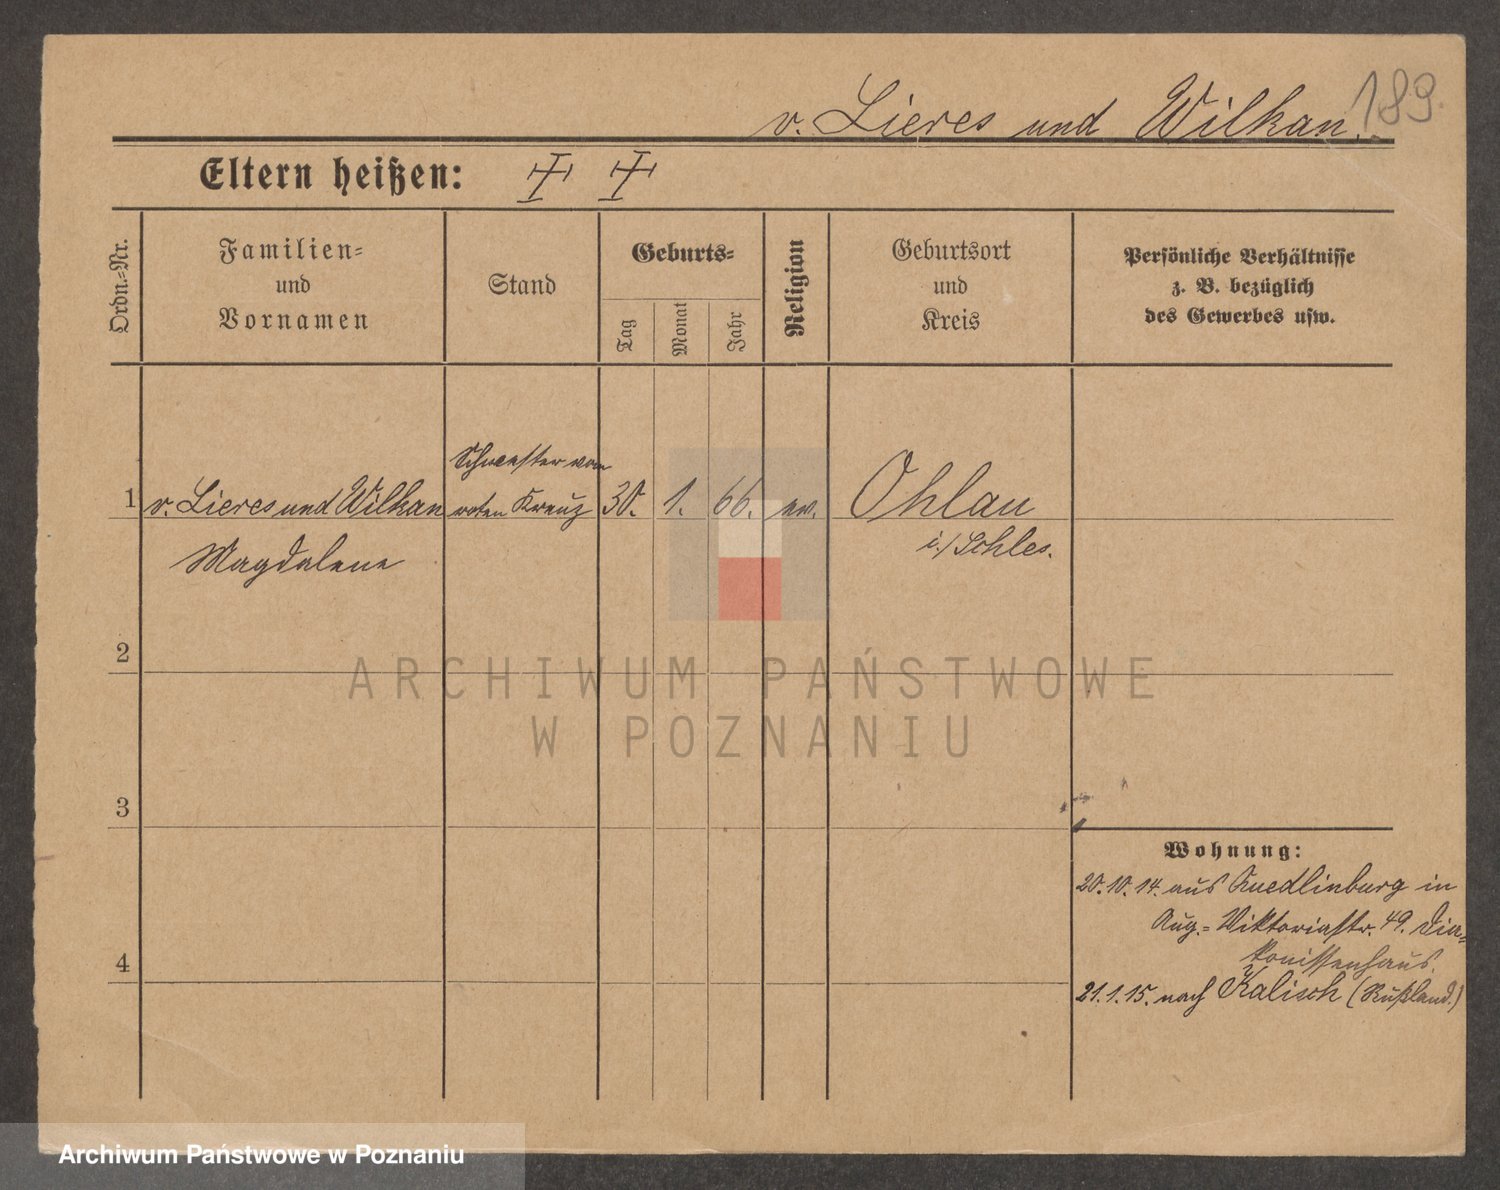 v. Lieres und Wilkan. 189.
Eltern heißen: ‡ ‡
Ordn.=Nr.
Familien=
und
Vornamen
Stand
Geburts=
Tag
Monat
Jahr
Religion
Geburtsort
und
Kreis
Persönliche Verhältnisse
z. B. bezüglich
des Gewerbes usw.
Schwester vom
1 v. Lieres und Wilkan roten Kreuz 30. 1. 66. ev. Ohlau
Magdalene i./Schles.
2
ARCHIWUM PAŃSTWOWE
W POZNANIU
3
Wohnung:
20.10.14. aus Quedlinburg in
Aug.=Viktoriastr. 49. Dia=
konissenhaus.
4
21.1.15. nach Kalisch (Rußland.)
Archiwum Państwowe w Poznaniu